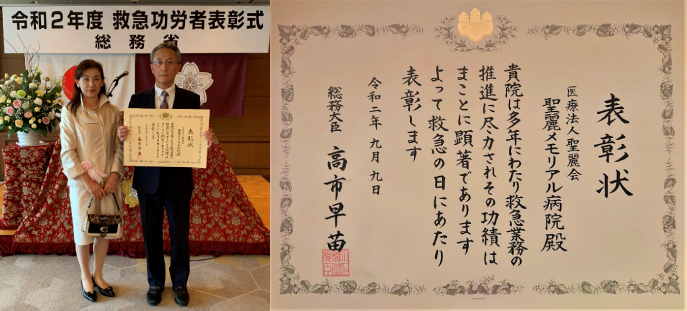 令和２年度 救急功労者表彰式
総務省
表彰状
表彰状
医療法人聖麗会
聖麗メモリアル病院殿
貴院は多年にわたり救急業務の
推進に尽力されその功績は
まことに顕著であります
よって救急の日にあたり
表彰します
令和二年九月九日
総務大臣 高市早苗